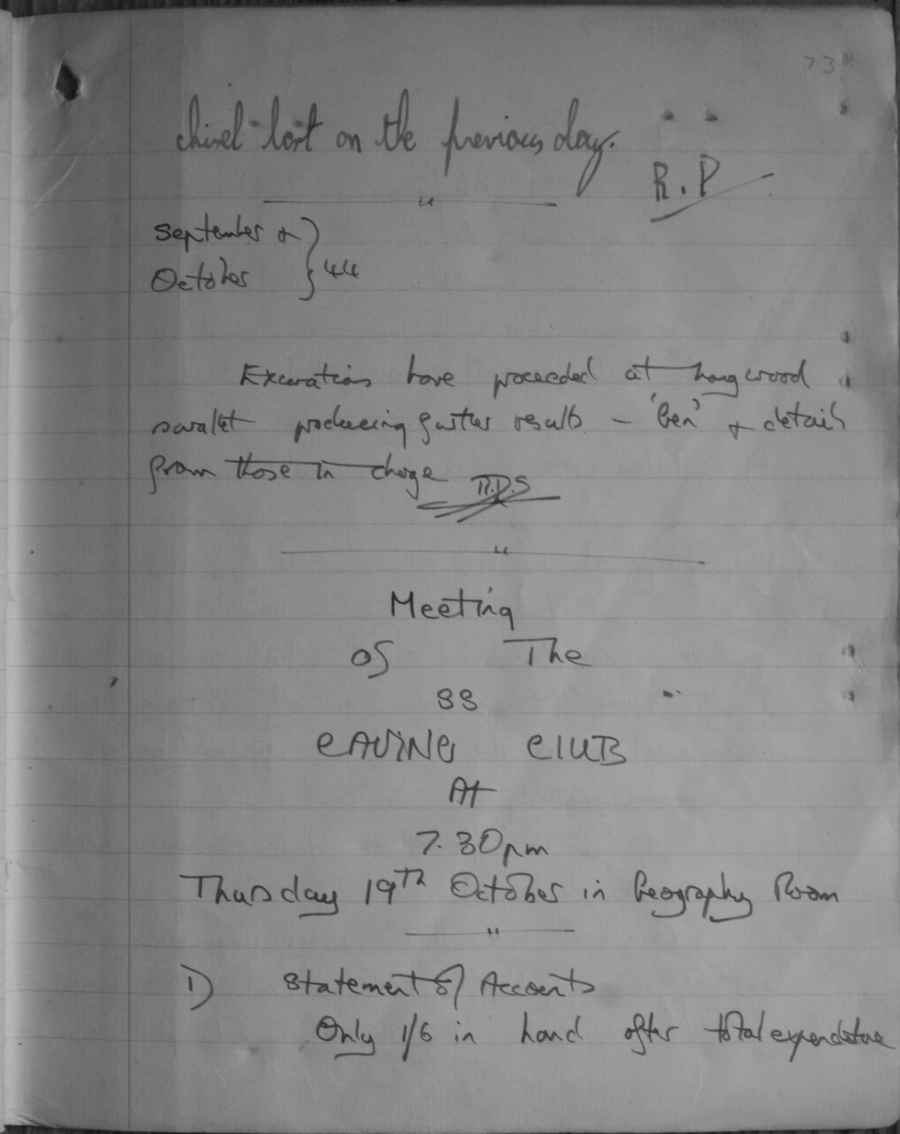 73
chisel lost on the previous day.
R.P
September &
October } 44
Excavations have proceeded at Longwood
swallet producing further results - 'gen' & details
from those in charge
Meeting
Of The
SS
CAVING CLUB
At
7.30pm
Thursday 19th October in Geography Room
1) Statement of Accounts
Only 1/6 in hand after total expenditure